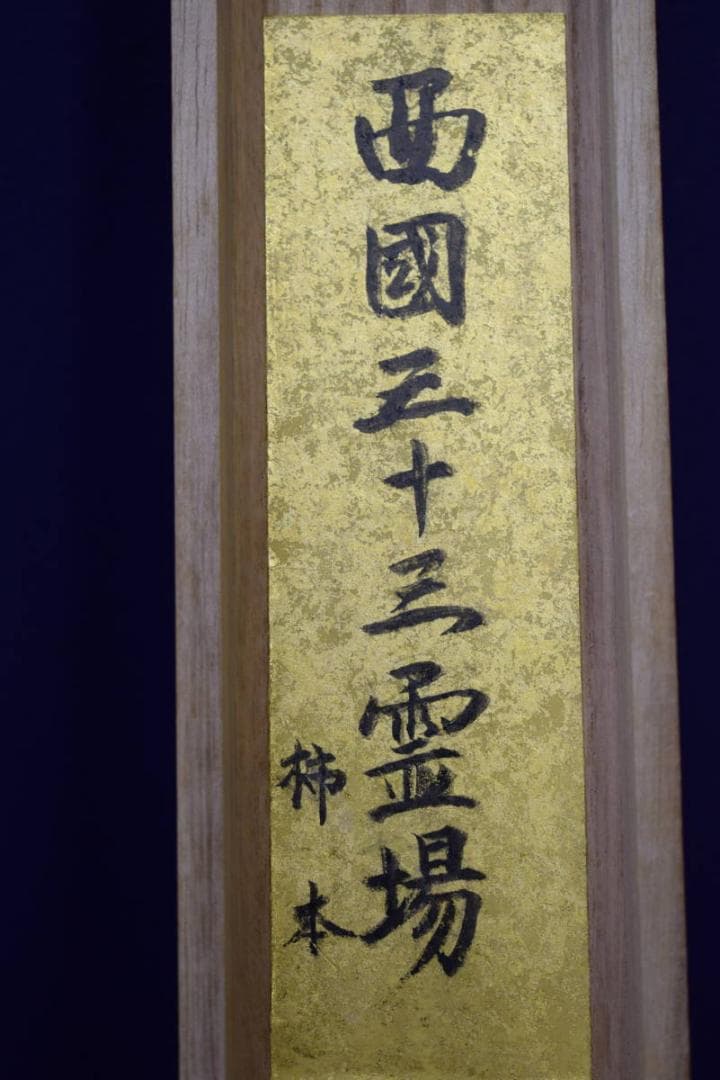 西國三十三霊場
柿本